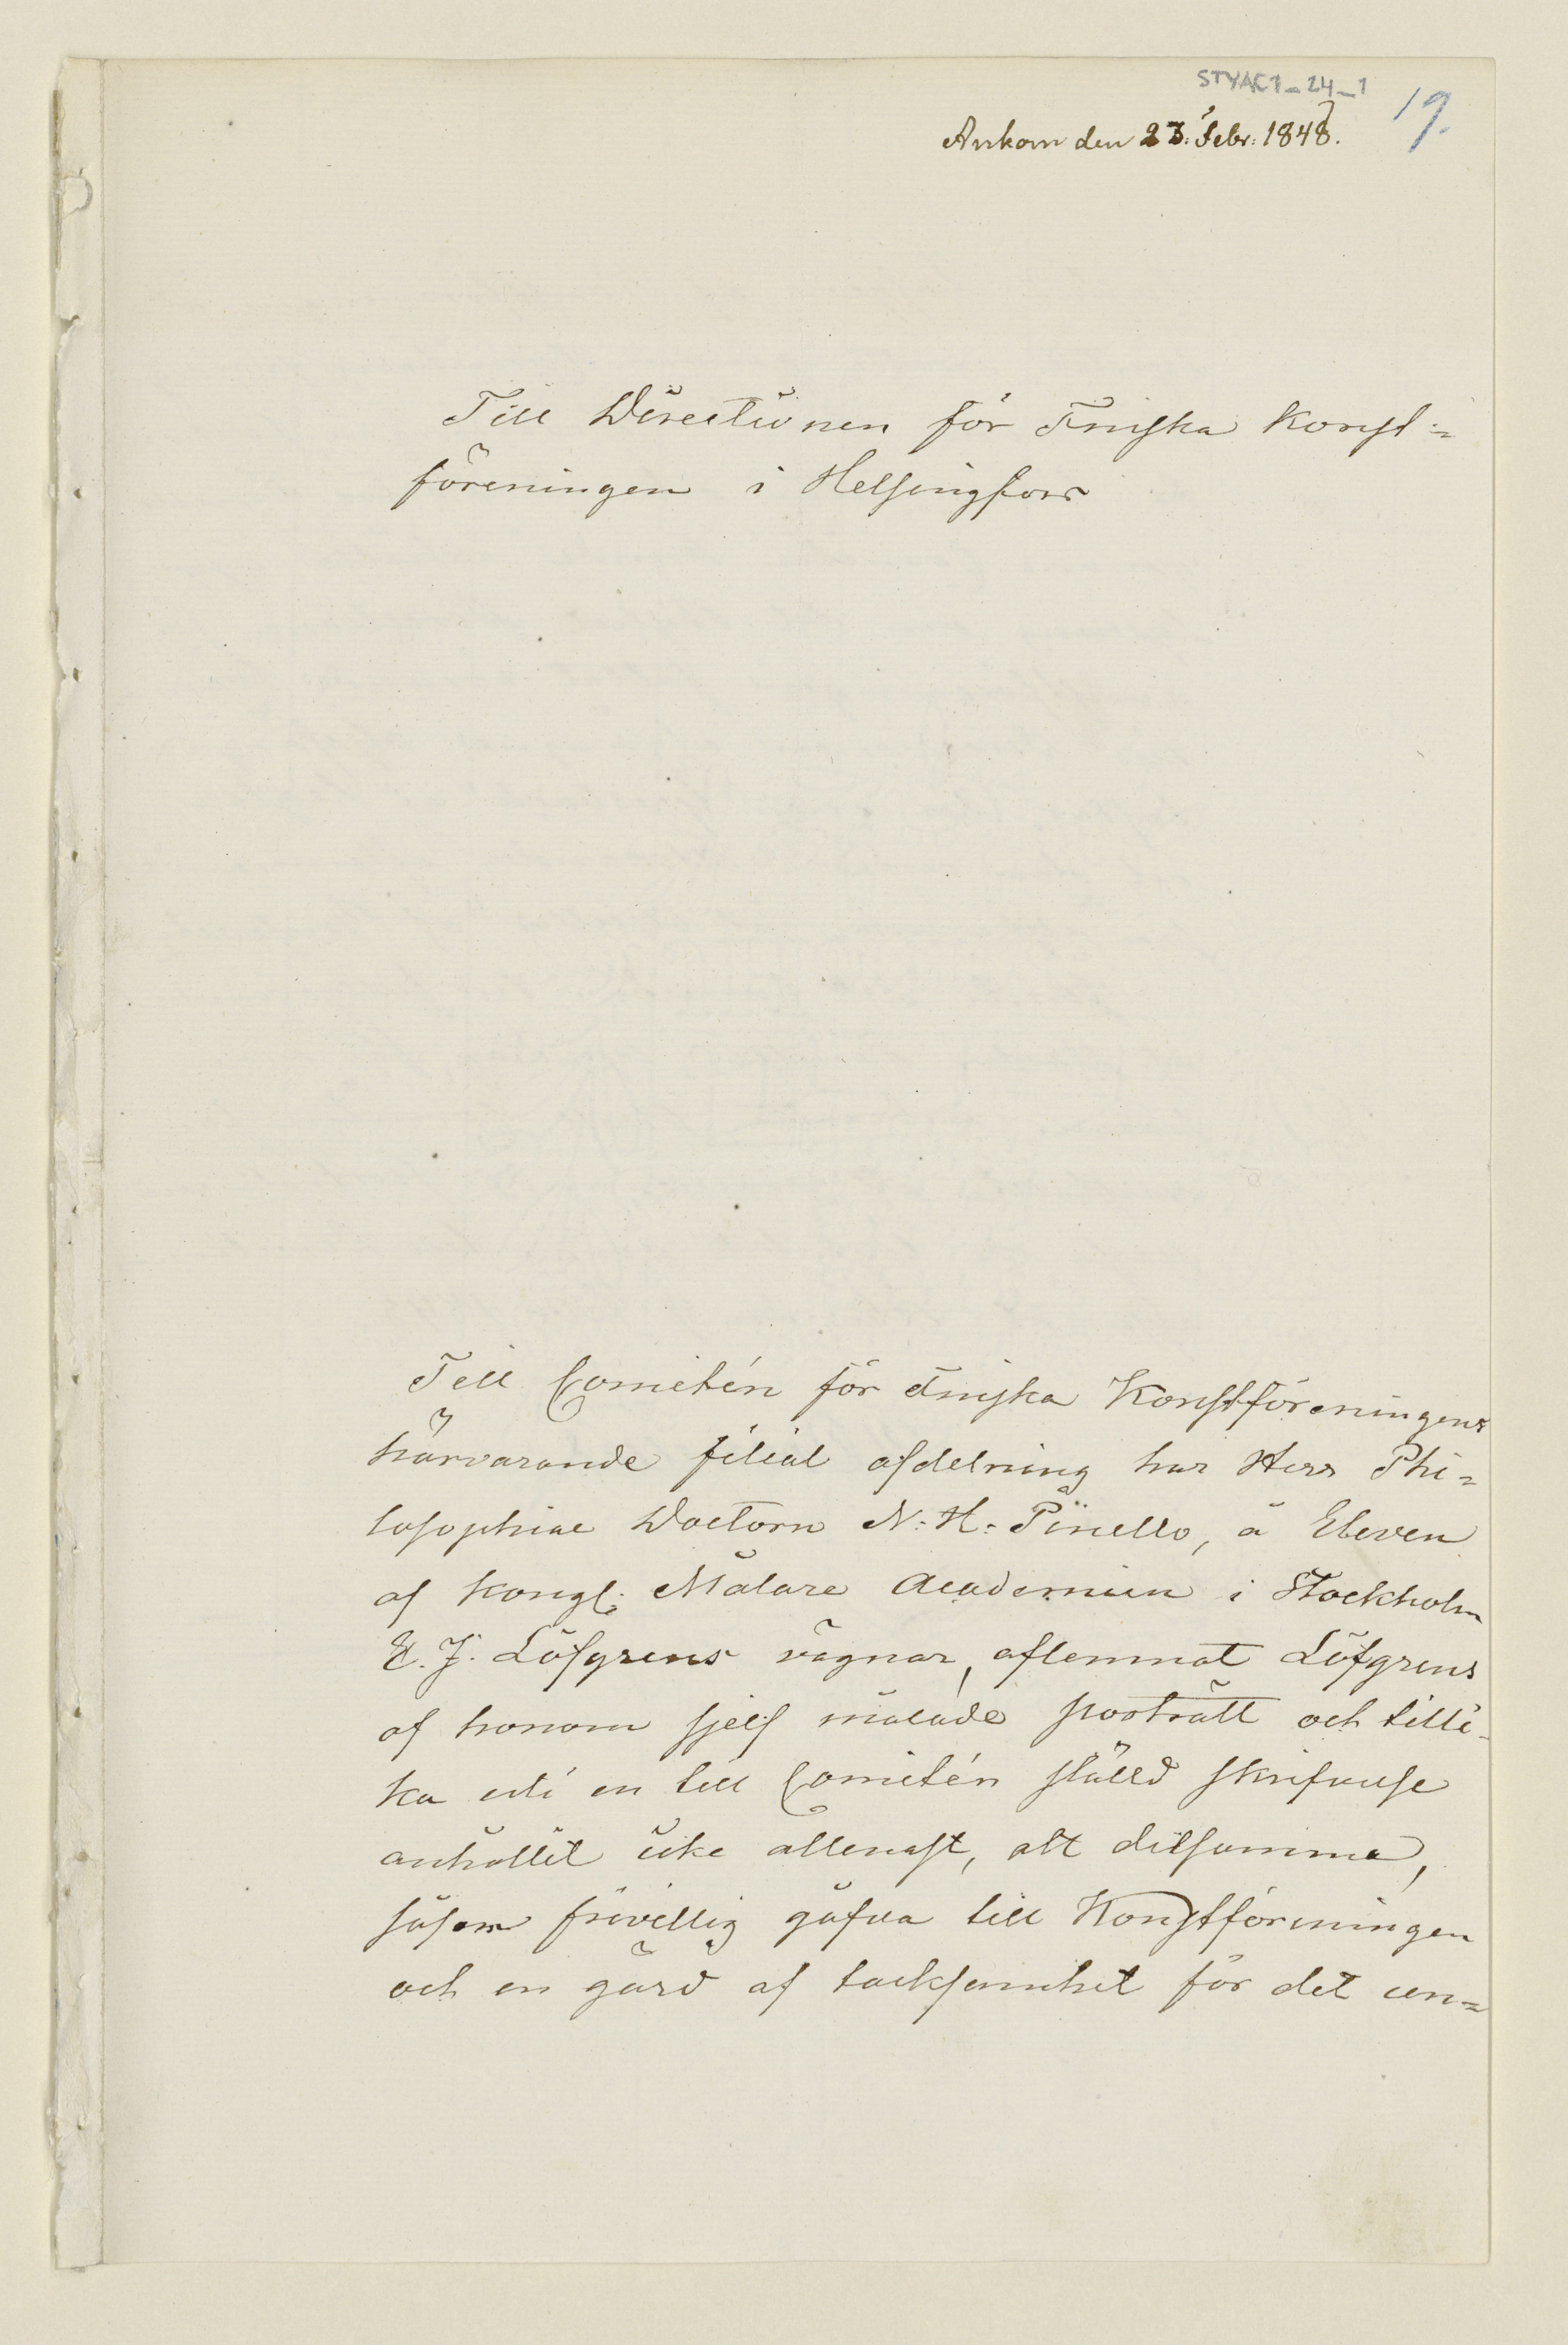 STYAC1_24_1
19.
Ankom den 23: Febr: 1848.
Till Directionen för Finska Konst=
föreningen i Helsingfors
Till Comitén för Finska Konstföreningens
härvarande filial afdelning har Herr Phi=
losophiae Doctorn N: H: Pinello, å Eleven
af Kongl: Målare Academien i Stockholm
E. J. Löfgrens vägnar, aflemnat Löfgrens
af honom sjelf målade porträtt och tilli-
ka uti en till Comitén ställd skrifvelse
anhållit icke allenast, att detsamma,
såsom frivillig gåfva till Konstföreningen
och en gärd af tacksamhet för det un=